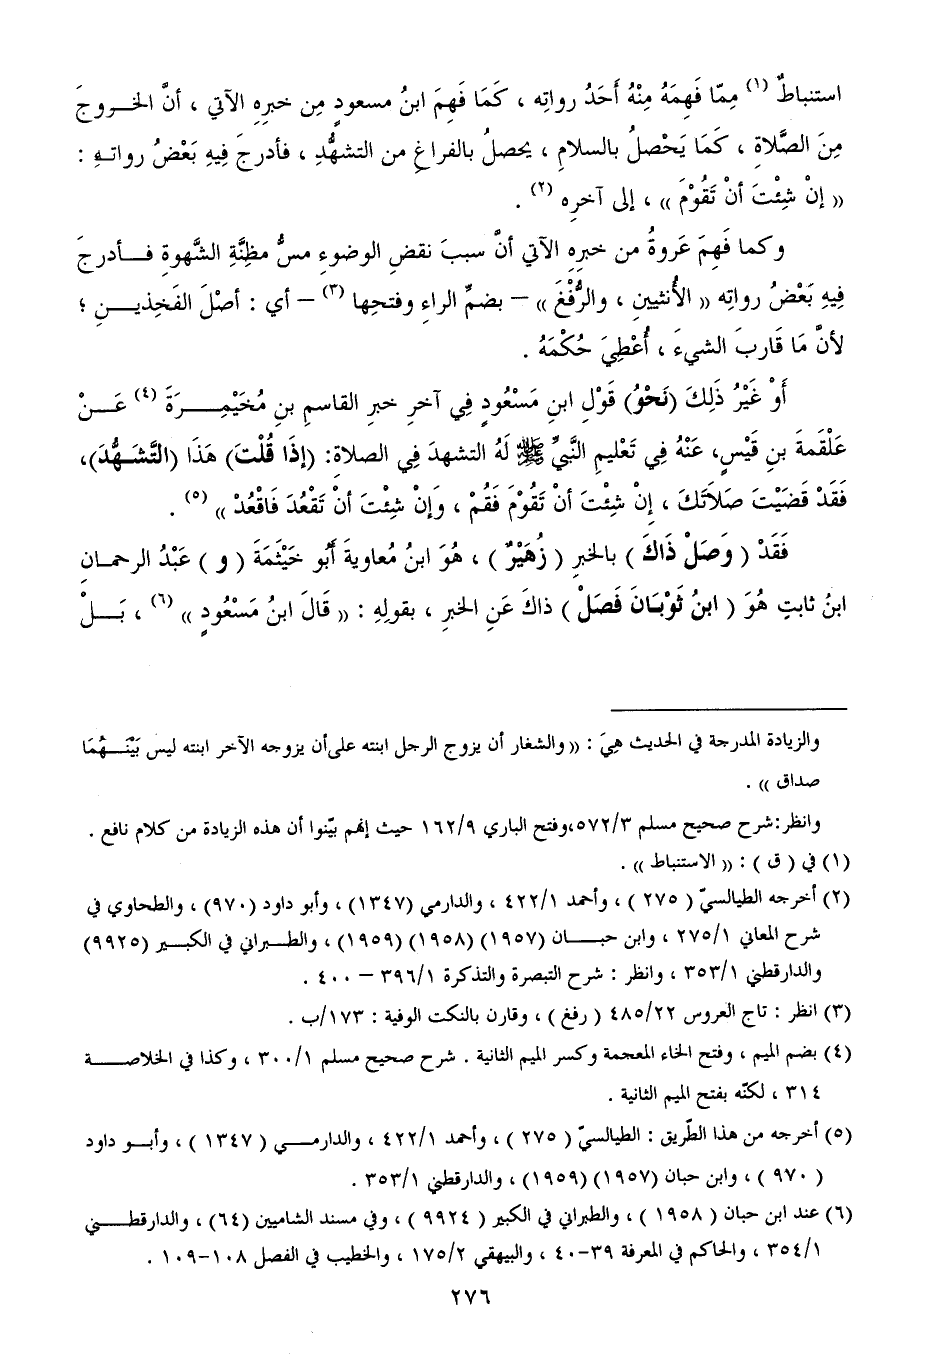 استنباطٌ (١) مِمّا فَهِمَهُ مِنْهُ أَحَدُ رواتِه ، كَمَا فَهِمَ ابنُ مسعودٍ مِن خبرِهِ الآتي ، أنَّ الخــروجَ
مِنَ الصَّلاةِ ، كَمَا يَحْصلُ بالسلامِ ، يحصلُ بالفراغِ من التشهُّدِ ، فأدرجَ فِيهِ بَعْضُ رواتــهِ :
« إنْ شِئْتَ أنْ تَقُوْمَ » ، إلى آخرِه (٢) .
وكما فَهِمَ عَروةُ من خبرِهِ الآتي أنَّ سببَ نقضِ الوضوءِ مسُّ مظِنَّةِ الشَّهوةِ فــأدرجَ
فِيهِ بَعْضُ رواتِه « الأُنثيينِ ، والرُّفْغَ » – بضمِّ الراءِ وفتحِها (٣) – أي : أصْلَ الفَخِذيــنِ ؛
لأنَّ مَا قاربَ الشيءَ ، أُعْطِيَ حُكْمَهُ .
أَوْ غَيْرُ ذَلِكَ (نَحْوُ) قَوْلِ ابنِ مَسْعُودٍ فِي آخرِ خبرِ القاسمِ بنِ مُخَيْمِــرَةَ (٤) عَــنْ
عَلْقَمةَ بنِ قَيْسٍ، عَنْهُ فِي تَعْليمِ النَّبيِّ ﷺ لَهُ التشهدَ فِي الصلاةِ: (إذَا قُلْتَ) هَذَا (التَّشَهُّدَ)،
فَقَدْ قَضَيْتَ صَلَاتَكَ ، إنْ شِئْتَ أنْ تَقُوْمَ فَقُمْ ، وَإنْ شِئْتَ أنْ تَقْعُدَ فَاقْعُدْ » (٥) .
فَقَدْ ( وَصَلْ ذَاكَ ) بالخبرِ ( زُهَيْرٌ ) ، هُوَ ابنُ مُعاويةَ أَبُو خَيْثَمَةَ ( و ) عَبْدُ الرحمــانِ
ابنُ ثابتٍ هُوَ ( ابنُ ثَوْبَانَ فَصَلْ ) ذاكَ عَنِ الخبرِ ، بقولِهِ : « قَالَ ابنُ مَسْعُودٍ » (٦) ، بَــلْ
والزيادة المدرجة في الحديث هِيَ : « والشغار أن يزوج الرجل ابنته على أن يزوجه الآخر ابنته ليس بَيْنَــهُمَا
صداق » .
وانظر:شرح صحيح مسلم ٥٧٢/٣،وفتح الباري ١٦٢/٩ حيث إنهم بيّنوا أن هذه الزيادة من كلام نافع .
(١) في ( ق ) : « الاستنباط » .
(٢) أخرجه الطيالسيّ ( ٢٧٥ ) ، وأحمد ٤٢٢/١ ، والدارمي (١٣٤٧) ، وأبو داود (٩٧٠) ، والطحاوي في
شرح المعاني ٢٧٥/١ ، وابن حبــان (١٩٥٧) (١٩٥٨) (١٩٥٩) ، والطــبراني في الكبــير (٩٩٢٥)
والدارقطني ٣٥٣/١ ، وانظر : شرح التبصرة والتذكرة ٣٩٦/١ – ٤٠٠ .
(٣) انظر : تاج العروس ٤٨٥/٢٢ ( رفغ ) ، وقارن بالنكت الوفية : ١٧٣/ب .
(٤) بضم الميم ، وفتح الخاء المعجمة وكسر الميم الثانية . شرح صحيح مسلم ٣٠٠/١ ، وكذا في الخلاصــة
٣١٤ ، لكنّه بفتح الميم الثانية .
(٥) أخرجه من هذا الطّريق : الطيالسيّ ( ٢٧٥ ) ، وأحمد ٤٢٢/١ ، والدارمــي ( ١٣٤٧ ) ، وأبــو داود
( ٩٧٠ ) ، وابن حبان (١٩٥٧) (١٩٥٩) ، والدارقطني ٣٥٣/١ .
(٦) عند ابن حبان ( ١٩٥٨ ) ، والطبراني في الكبير ( ٩٩٢٤ ) ، وفي مسند الشاميين (٦٤) ، والدارقطــني
٣٥٤/١ ، والحاكم في المعرفة ٣٩-٤٠ ، والبيهقي ١٧٥/٢ ، والخطيب في الفصل ١٠٨-١٠٩ .
٢٧٦